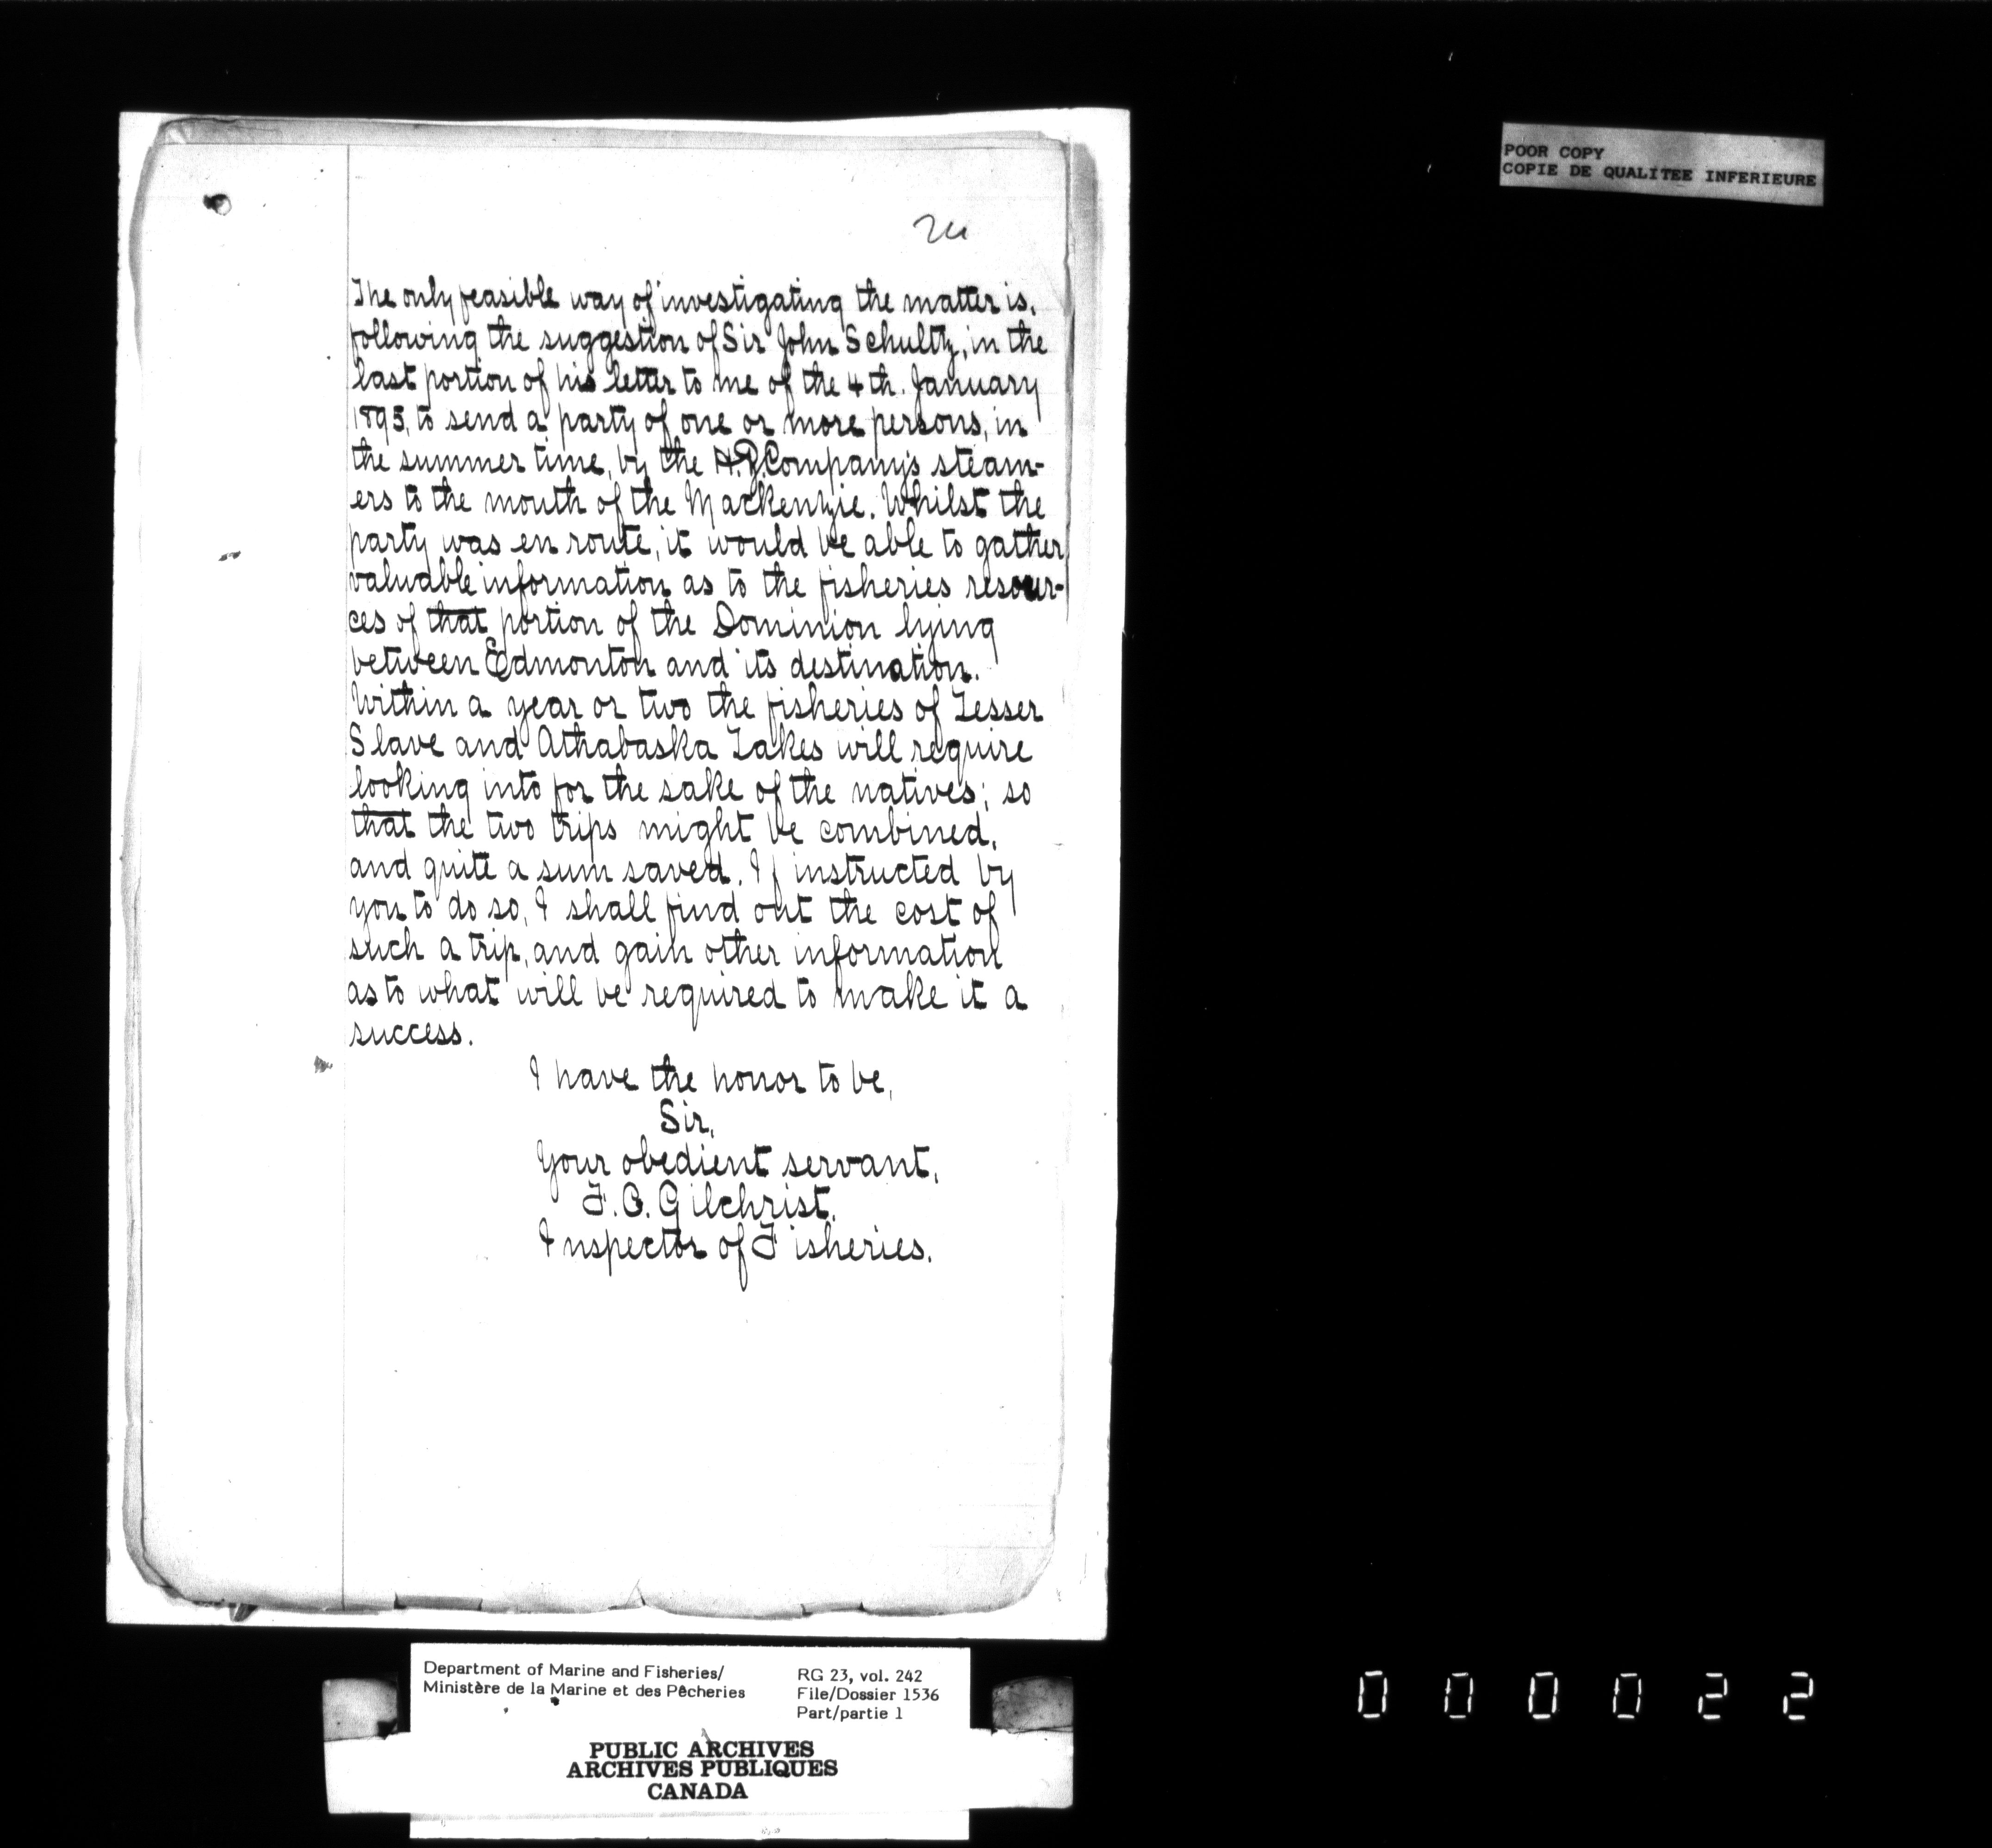 POOR COPY
COPIE DE QUALITEE INFERIEURE
The only feasible way of investigating the matter is,
following the suggestion of Sir John Schultz, in the
last portion of his letter to me of the 4th. January
1895, to send a party of one or more persons, in
the summer time, by the H.B. Company's steam-
ers to the mouth of the Mackenzie. Whilst the
party was en route, it would be able to gather
valuable information as to the fisheries resour-
ces of that portion of the Dominion lying
between Edmonton and its destination.
Within a year or two the fisheries of Lesser
Slave and Athabaska Lakes will require
looking into for the sake of the natives; so
that the two trips might be combined,
and quite a sum saved. If instructed by
you to do so, I shall find out the cost of
such a trip, and gain other information
as to what will be required to make it a
success.
I have the honor to be,
Sir,
Your obedient servant,
F.C. Gilchrist.
Inspector of Fisheries.
Department of Marine and Fisheries/
Ministère de la Marine et des Pêcheries
RG 23, vol. 242
File/Dossier 1536
Part/partie 1
PUBLIC ARCHIVES
ARCHIVES PUBLIQUES
CANADA
000022